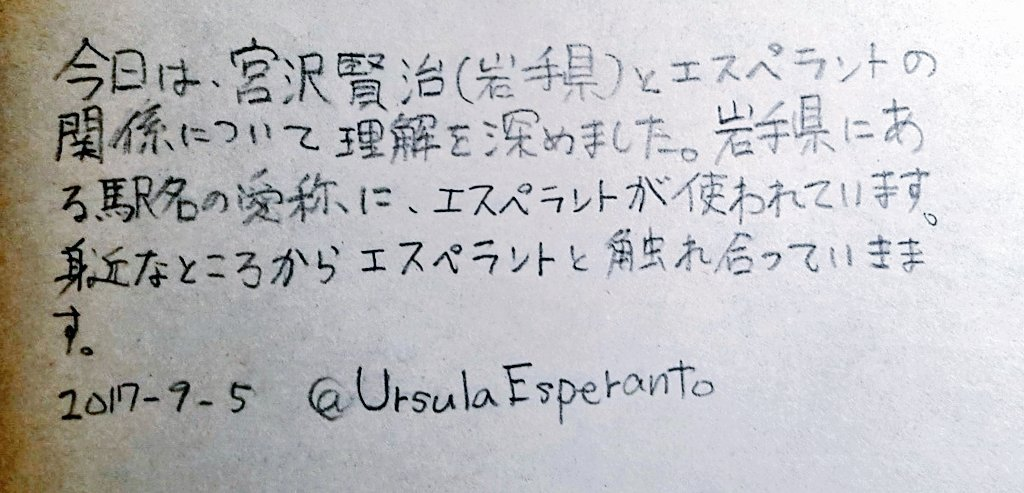 今日は、宮沢賢治(岩手県)とエスペラントの
関係について理解を深めました。岩手県にあ
る駅名の愛称に、エスペラントが使われています。
身近なところからエスペラントと触れ合っていきま
す。
2017-9-5 @UrsulaEsperanto